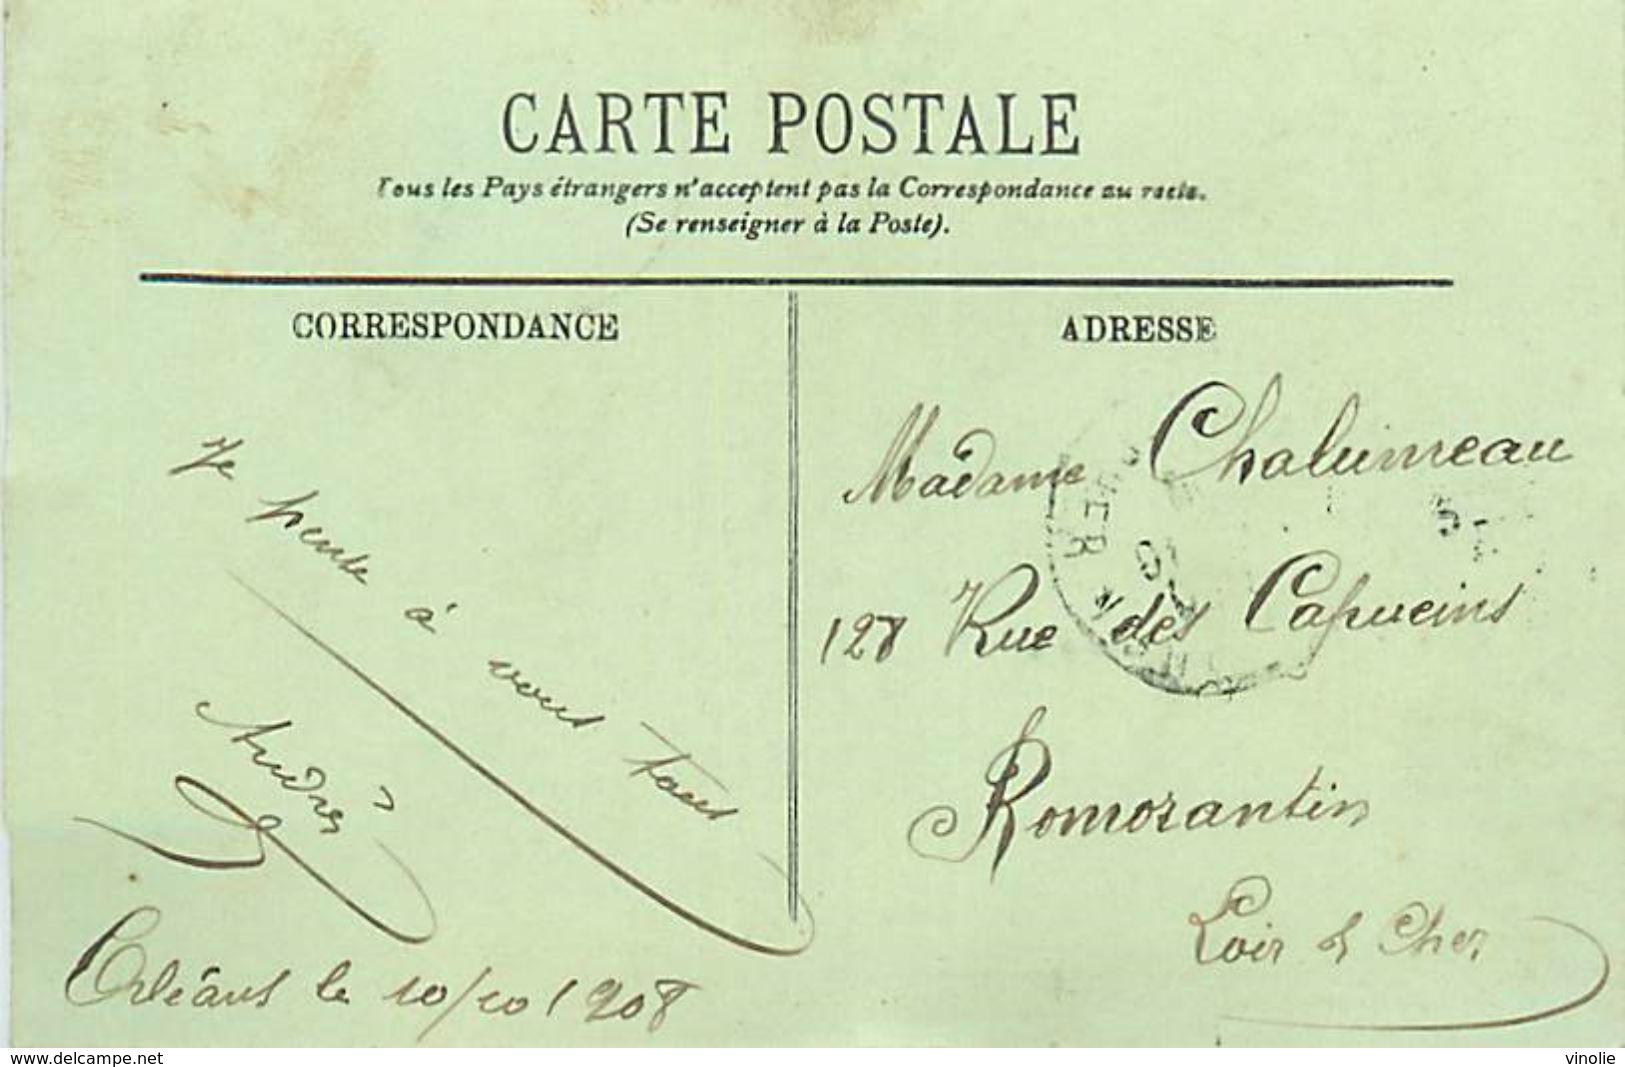 CARTE POSTALE
Tous les Pays étrangers n'acceptent pas la Correspondance au recto.
(Se renseigner à la Poste).
CORRESPONDANCE
Je pense à vous tous
André
Orléans le 10/10/1908
ADRESSE
Madame Chalumeau
128 Rue des Capucins
Romorantin
Loir & Cher
www.delcampe.net
vinolie